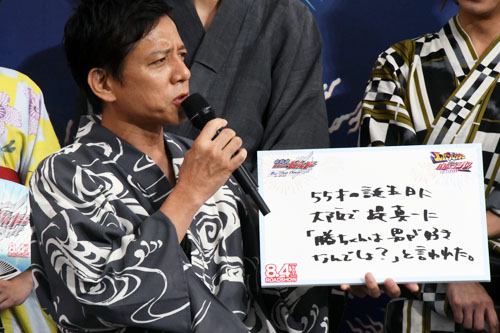 55才の誕生日に
大阪で堤真一に
「勝ちゃんは男が好き
なんでしょ?」と言われた。
8.4
ROADSHOW
8.4